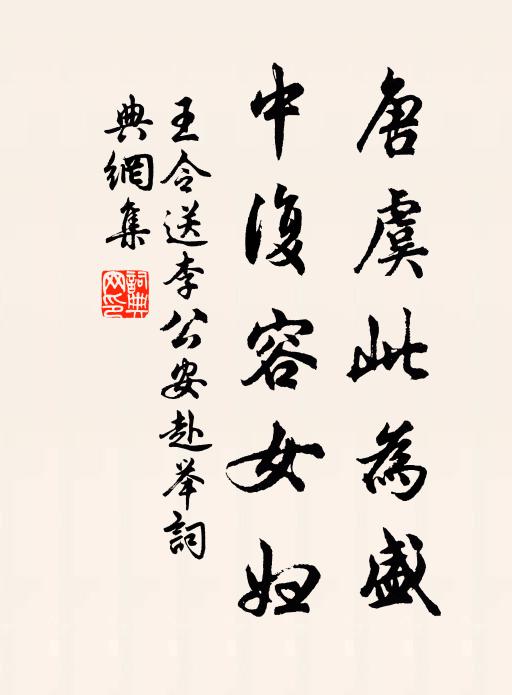 唐虞此為盛
中復容女婦
王令送李公安赴举詞
典網集
詞典網印